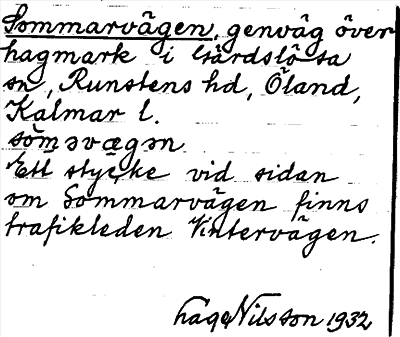 Sommarvägen, genväg över
hagmark i Gärdslösa
sn, Runstens hd, Öland,
Kalmar l.
sòmərvægən
Ett stycke vid sidan
om Sommarvägen finns
trafikleden Vintervägen.
Nilsson 1932